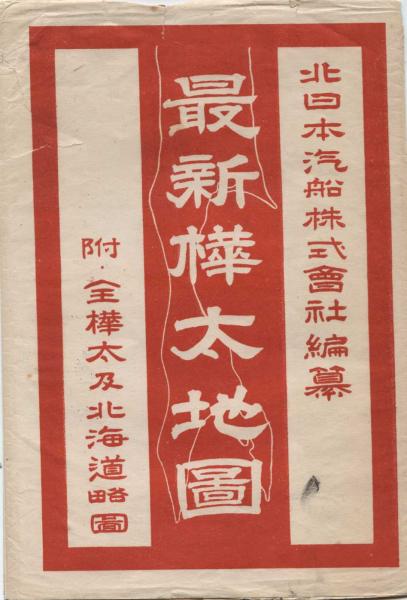 北日本汽船株式會社編纂
最新樺太地圖
附・全樺太及北海道略圖